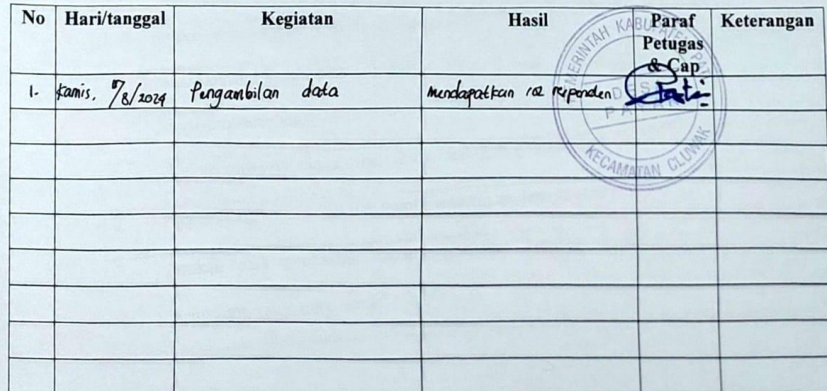 No Hari/tanggal Kegiatan Hasil Paraf Petugas & Cap Keterangan
1. Kamis, /8/2024 Pengambilan data mendapatkan 102 responden
PEMERINTAH KABUPATEN PATI
DESA
KECAMATAN CLUWAK